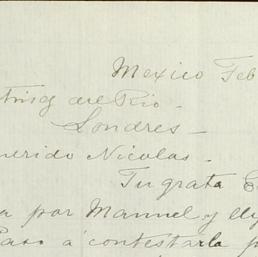 Mexico Feb
del Rio.
Londres_
uerido Nicolas.
Tu grata
a por Manuel y lle
Paso á contestarla p